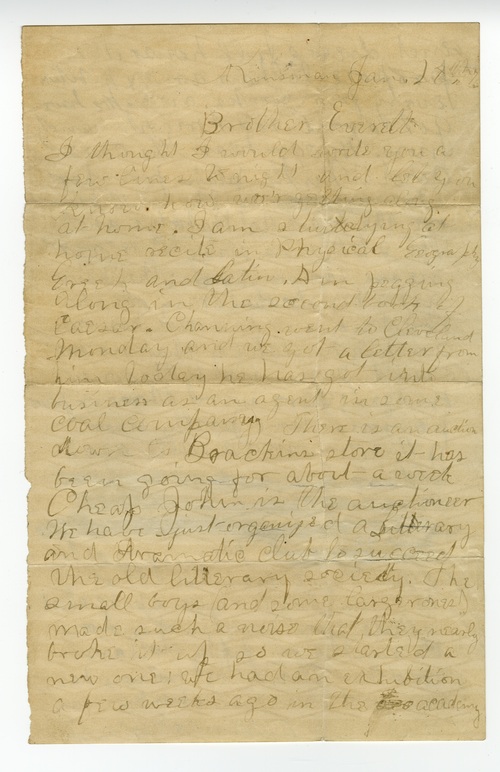 Kinsman Jan.
Brother Everett
I thought I would write you a
few lines tonight and let you
know how we're getting along
at home. I am studying at
home recite in Physical Geography
Greek and Latin. Am pegging
along in the second book of
Caesar. Channing went to Cleveland
Monday and we got a letter from
him today he has got into
business as an agent in some
coal company. There is an auction
down to Brackins store it has
been going for about a week
Cheap John is the auctioneer
We have just organized a Literary
and Dramatic club to succeed
the old literary society. The
small boys (and some larger ones)
made such a noise that they nearly
broke it up so we started a
new one. We had an exhibition
a few weeks ago in the academy